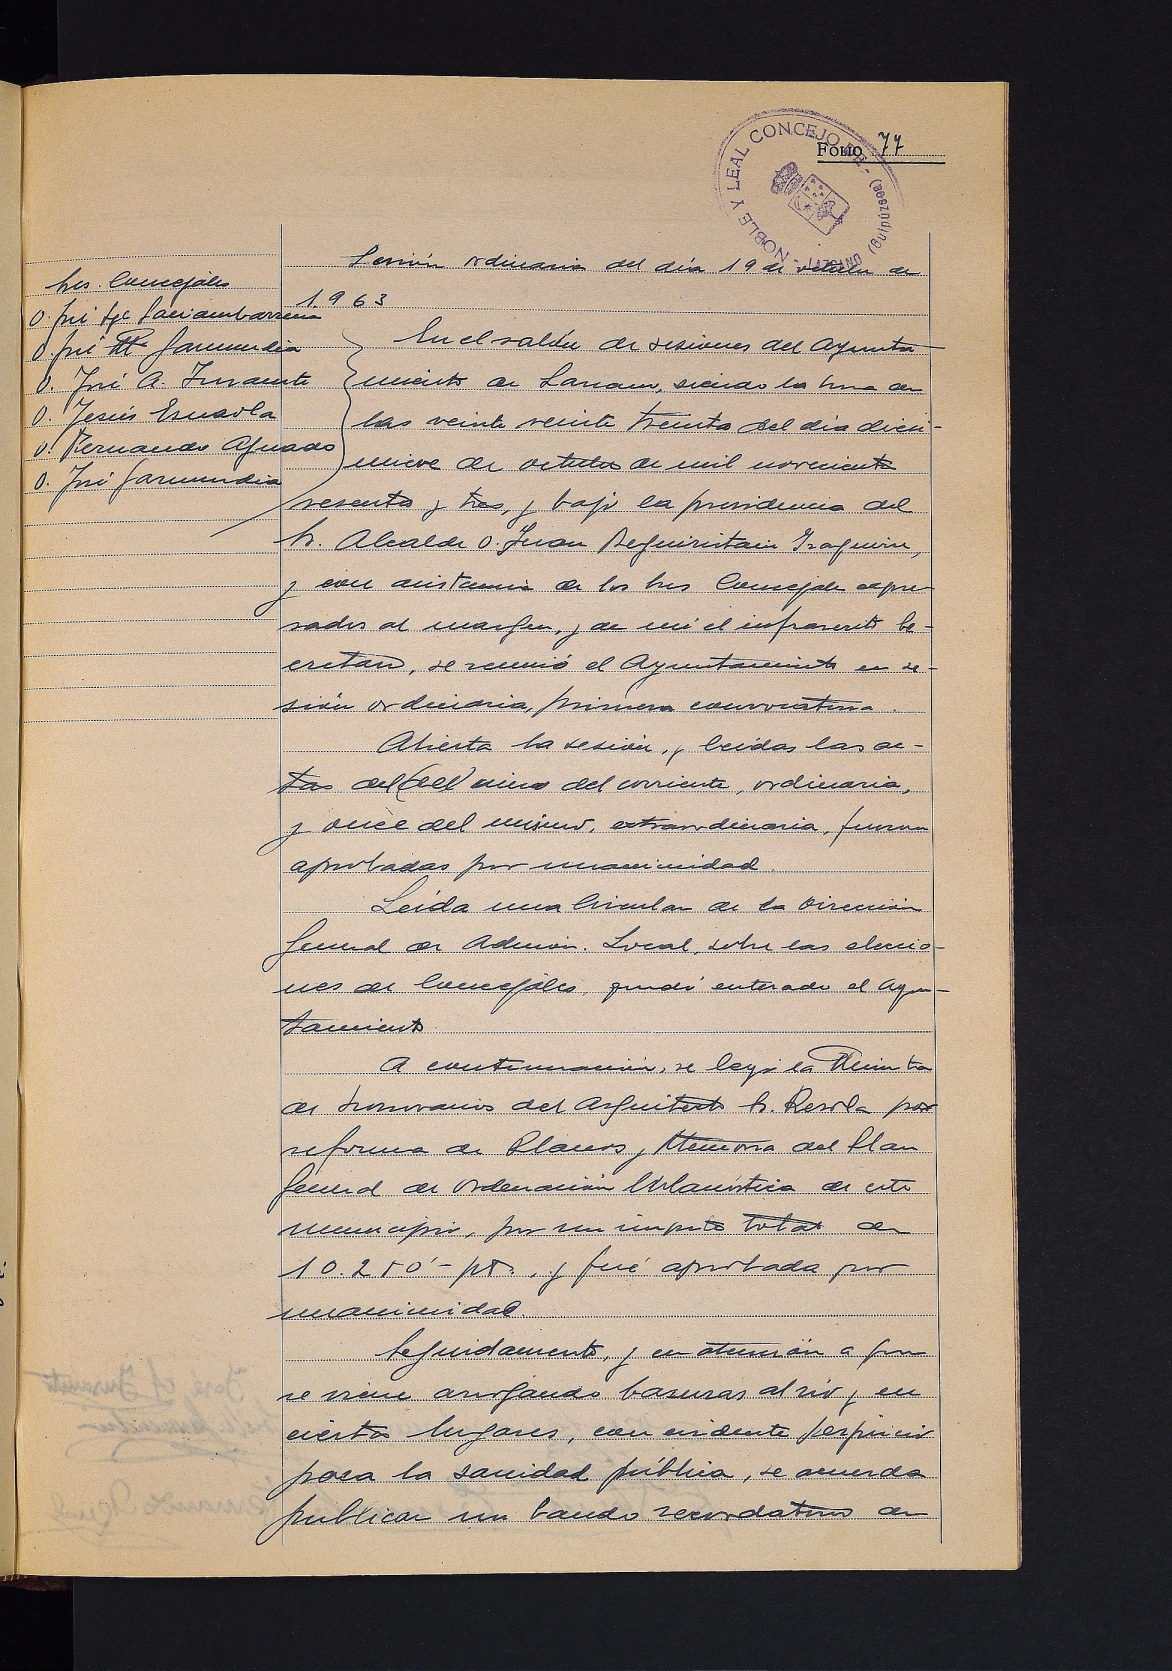 FOLIO 77
NOBLE Y LEAL CONCEJO DE (Guipúzcoa)
Sesión ordinaria del día 19 de octubre de
1963
Sres. Concejales
D. José
D. José Mª Garmendia
D. José A. Inrausti
D. Jesús Esnaola
D. Fernando Aguado
D. José Garmendia
En el salón de sesiones del Ayunta-
miento de siendo la hora de
las veinte veinte treinta del día dieci-
nueve de octubre de mil novecientos
sesenta y tres, y bajo la presidencia del
Sr. Alcalde D. Juan Beguiristain
y con asistencia de los Sres Concejales expre-
sados al margen, y de mí el infrascrito Se-
cretario, se reunió el Ayuntamiento en se-
sión ordinaria, primera convocatoria.
Abierta la sesión, y leídas las ac-
tas del (del) cinco del corriente, ordinaria,
y once del mismo, extraordinaria, fueron
aprobadas por unanimidad.
Leída una Circular de la Dirección
General de Admon. Local, sobre las eleccio-
nes de Concejales, quedó enterado el Ayun-
tamiento.
A continuación, se leyó la Minuta
de honorarios del Arquitecto Sr. por
reforma de Planos y Memoria del Plan
General de Ordenación Urbanística de este
municipio, por un importe total de
10.250'- pts., y fué aprobada por
unanimidad.
Seguidamente, y en atención a que
se viene arrojando basuras al río y en
ciertos lugares, con evidente perjuicio
para la sanidad pública, se acuerda
publicar un bando recordatorio de